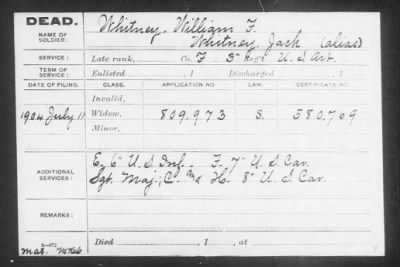 DEAD.
NAME OF SOLDIER:
Whitney, William F.
Whitney, Jack (alias)
SERVICE: Late rank, Co. F. 5" Reg't U.S. Art.
TERM OF SERVICE: Enlisted , 1 Discharged , 1
DATE OF FILING. CLASS. APPLICATION NO. LAW. CERTIFICATE NO.
Invalid,
1904 July 11 Widow, 809.973 S. 580.709
Minor.
ADDITIONAL SERVICES:
E. 6" U.S. Inf. F. 7" U.S. Cav.
Sgt. Maj., C. H. 8" U.S. Cav.
REMARKS:
Died , 1 , at